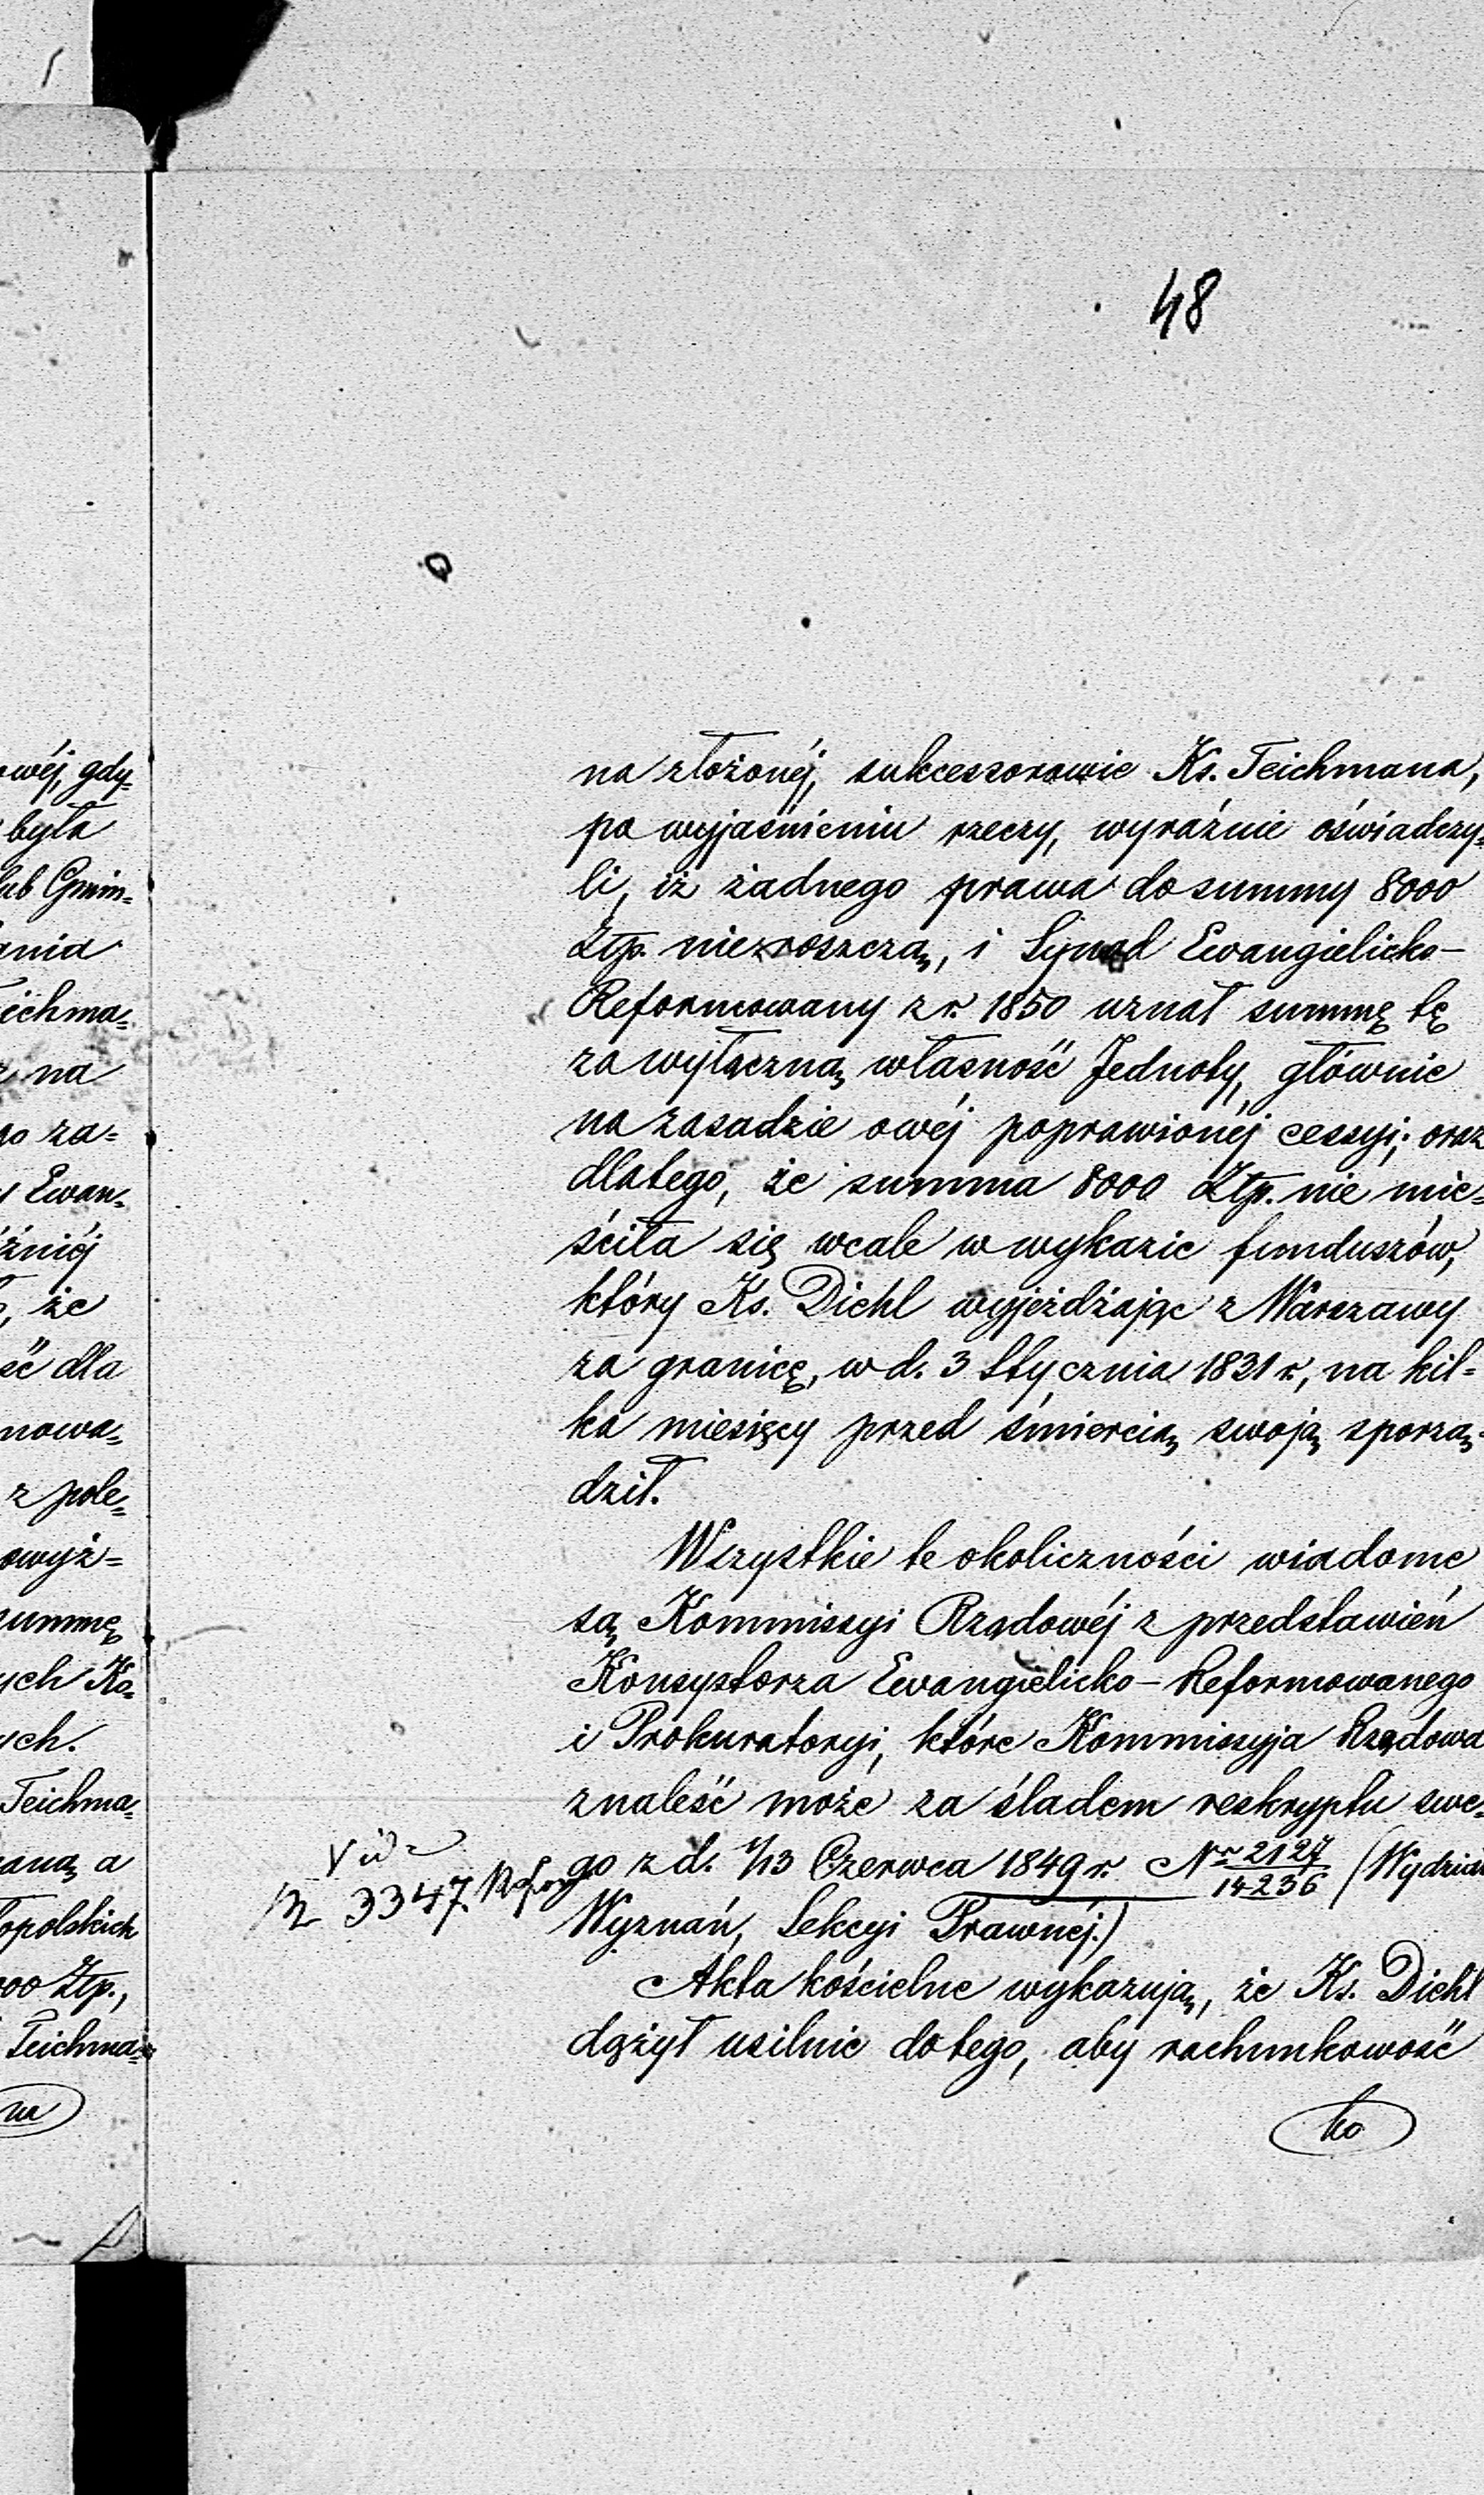 48
owéj, gdy=
była
lub Gmin=
ania
eichma=
na
go za=
Ewan=
źniéj
że
ść dla
nowa=
z pole=
owyż=
summę
ych Ko=
ych.
Teichma=
aną a
opolskich
000 Złp.,
Teichma=
na
na złożonéj, sukcessorowie Ks. Teichmana,
po wyjaśnieniu rzeczy, wyraźnie oświadczy=
li, iż żadnego prawa do summy 8000
Złp. nie roszczą, i Synod Ewangielicko-
Reformowany z r. 1850 uznał summę tę
za wyłączną własność Jednoty, głównie
na zasadzie owéj poprawionéj cessyi; oraz
dlatego, że summa 8000 Złp. nie mie=
ściła się wcale w wykazie funduszów,
który Ks. Diehl wyjeżdżając z Warszawy
za granicę, w d. 3 Stycznia 1831 r., na kil=
ka miesięcy przed śmiercią swoją sporzą=
dził.
Wszystkie te okoliczności wiadome
są Kommissyi Rządowéj z przedstawień
Konsystorza Ewangielicko-Reformowanego
i Prokuratoryi, które Kommissyja Rządowa
znaleść może za śladem reskryptu swe=
go z d. 1/13 Czerwca 1849 r. Nr 2127/14236 (Wydział
Wyznań, Sekcyi Prawnéj.)
Akta kościelne wykazują, że Ks. Diehl
dążył usilnie do tego, aby rachunkowość
ko
3347.